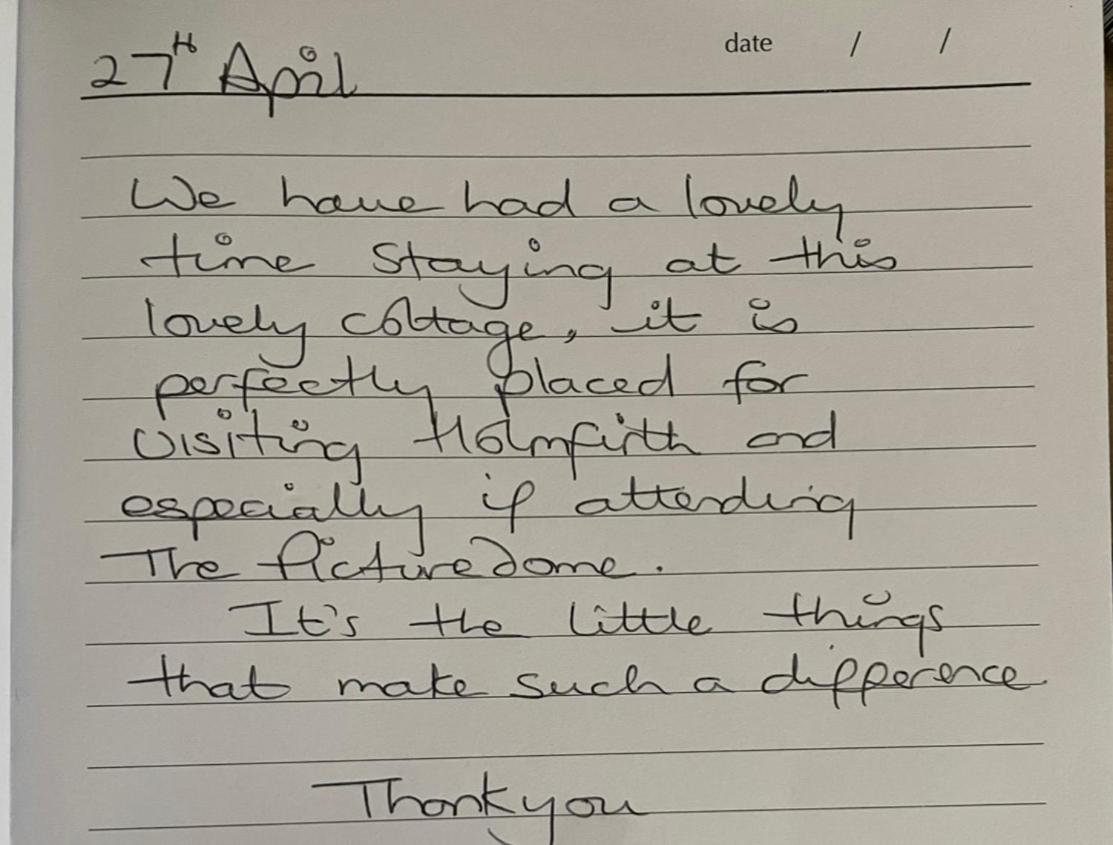 date / /
27TH April
We have had a lovely
time staying at this
lovely cottage, it is
perfectly placed for
visiting Holmfirth and
especially if attending
The Picturedome.
It's the little things
that make such a difference.
Thankyou